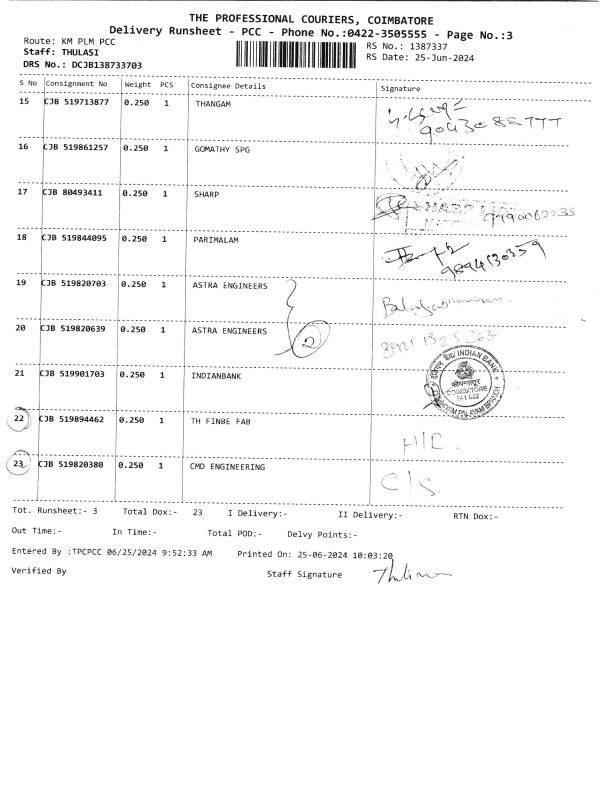 THE PROFESSIONAL COURIERS, COIMBATORE
Delivery Runsheet - PCC - Phone No.:0422-3505555 - Page No.:3
Route: KM PLM PCC
Staff: THULASI
DRS No.: DCJB138733703
RS No.: 1387337
RS Date: 25-Jun-2024
S No Consignment No Weight PCS Consignee Details Signature
15 CJB 519713877 0.250 1 THANGAM
16 CJB 519861257 0.250 1 GOMATHY SPG
17 CJB 80493411 0.250 1 SHARP
18 CJB 519844095 0.250 1 PARIMALAM
19 CJB 519820703 0.250 1 ASTRA ENGINEERS
20 CJB 519820639 0.250 1 ASTRA ENGINEERS 2
21 CJB 519901703 0.250 1 INDIANBANK
INDIAN BANK
COIMBATORE
22 CJB 519894462 0.250 1 TH FINBE FAB H/C.
23 CJB 519820380 0.250 1 CMD ENGINEERING C/S.
Tot. Runsheet:- 3 Total Dox:- 23 I Delivery:- II Delivery:- RTN Dox:-
Out Time:- In Time:- Total POD:- Delvy Points:-
Entered By :TPCPCC 06/25/2024 9:52:33 AM Printed On: 25-06-2024 10:03:20
Verified By Staff Signature